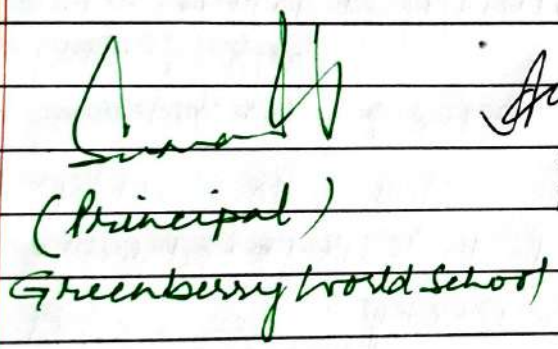 (Principal)
Greenberry World School